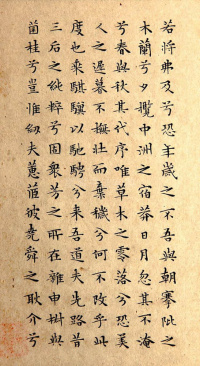 若將弗及兮恐年歲之不吾與朝搴阰之
木蘭兮夕攬中洲之宿莽日月忽其不淹
兮春與秋其代序唯草木之零落兮恐美
人之遲暮不撫壯而棄穢兮何不改乎此
度也乘騏驥以馳騁兮來吾道夫先路昔
三后之純粹兮固衆芳之所在雜申椒與
菌桂兮豈惟紉夫蕙茝彼堯舜之耿介兮